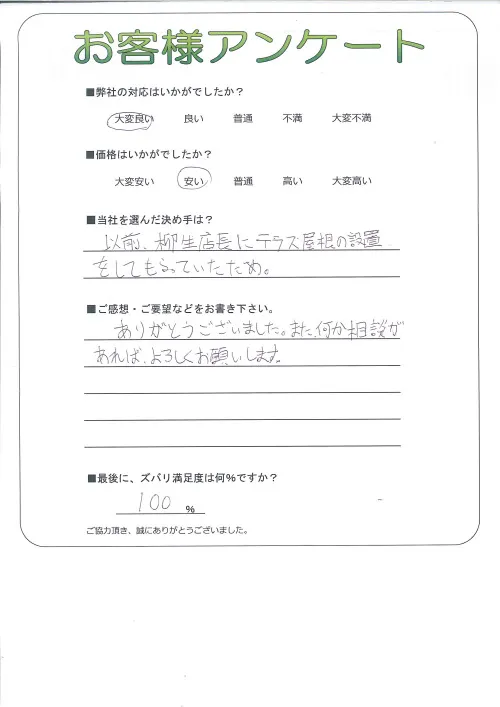 お客様アンケート
■弊社の対応はいかがでしたか？
大変良い 良い 普通 不満 大変不満
■価格はいかがでしたか？
大変安い 安い 普通 高い 大変高い
■当社を選んだ決め手は？
以前、柳生店長にテラス屋根の設置
をしてもらっていたため。
■ご感想・ご要望などをお書き下さい。
ありがとうございました。また、何か相談が
あれば、よろしくお願いします。
■最後に、ズバリ満足度は何％ですか？
100 ％
ご協力頂き、誠にありがとうございました。